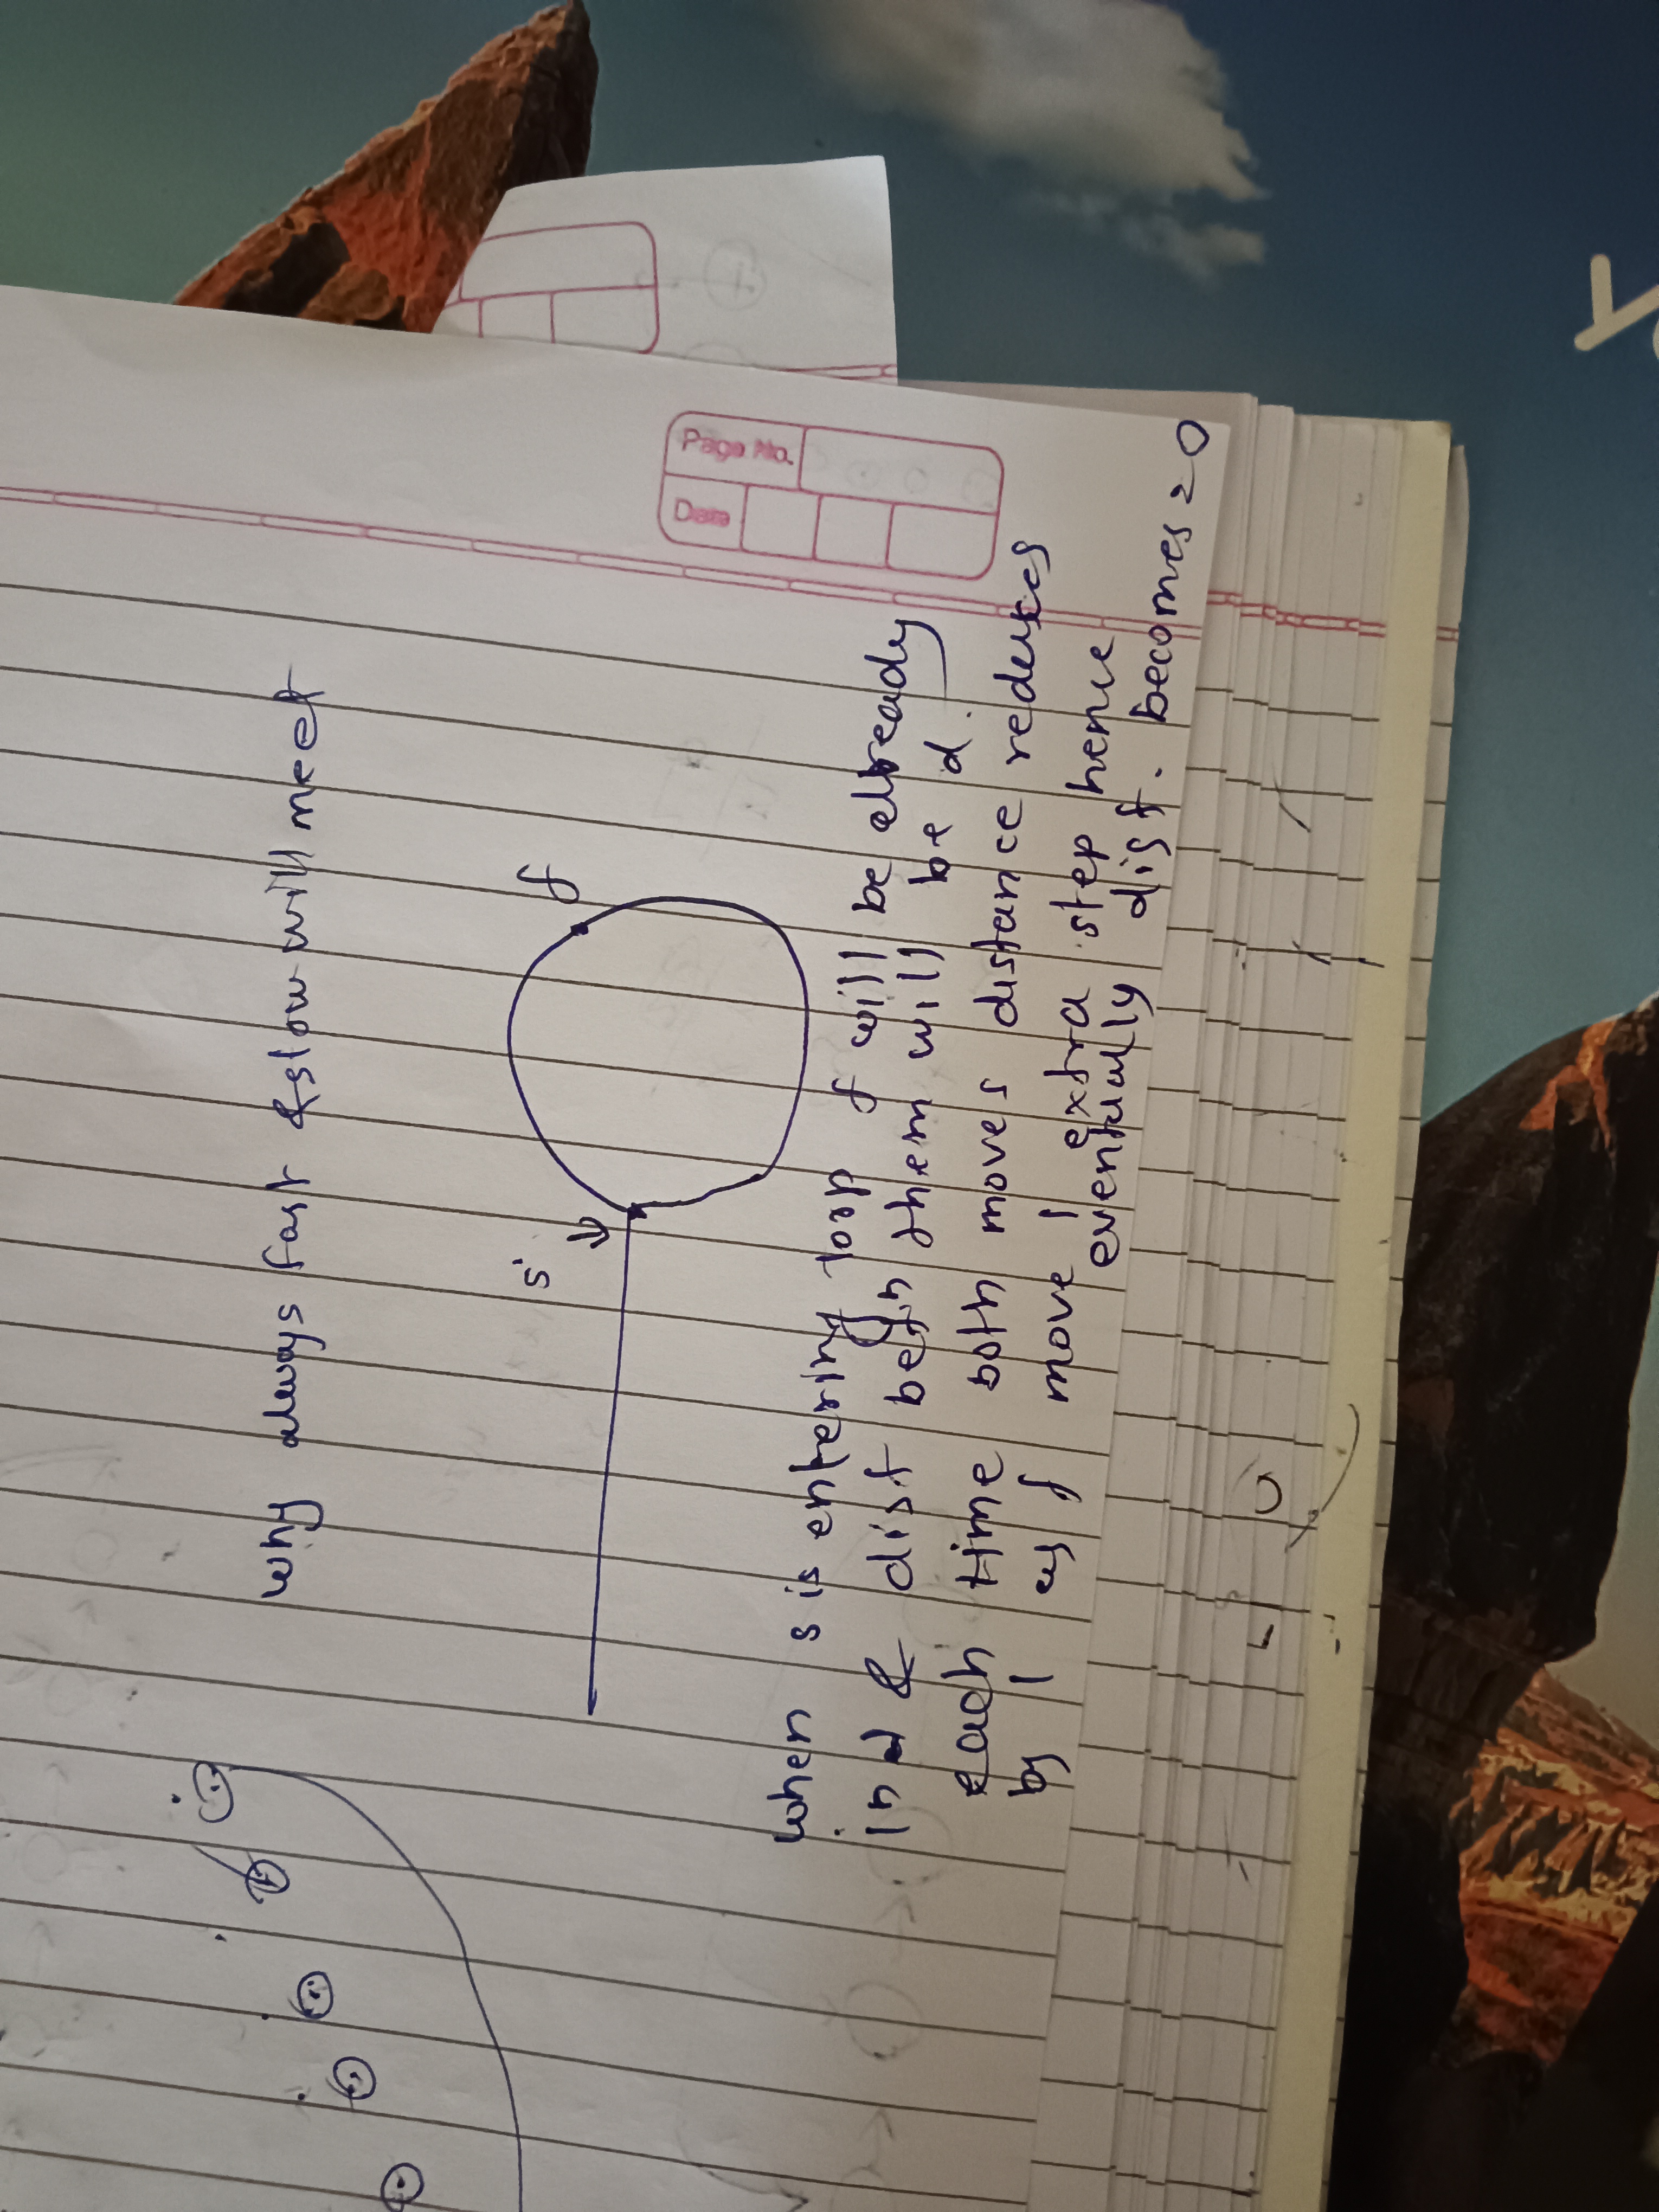 Page No.
Date
why always fast & slow will meet
f
s
when s is entering loop f will be already
in & dist betn them will be d.
each time both moves distance reduces
by 1 as f move 1 extra step hence
eventually dist. becomes = 0